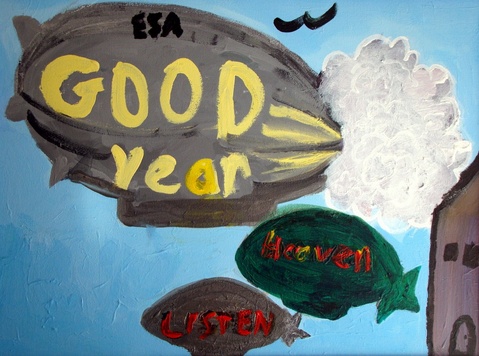 ESA
GOOD
year
Heaven
LISTEN